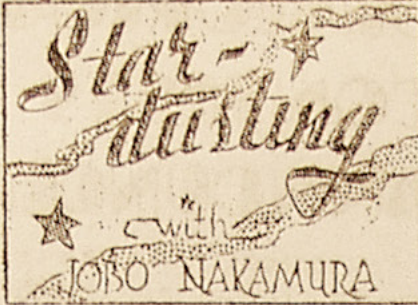 Star-
dusting
with
JOBO NAKAMURA